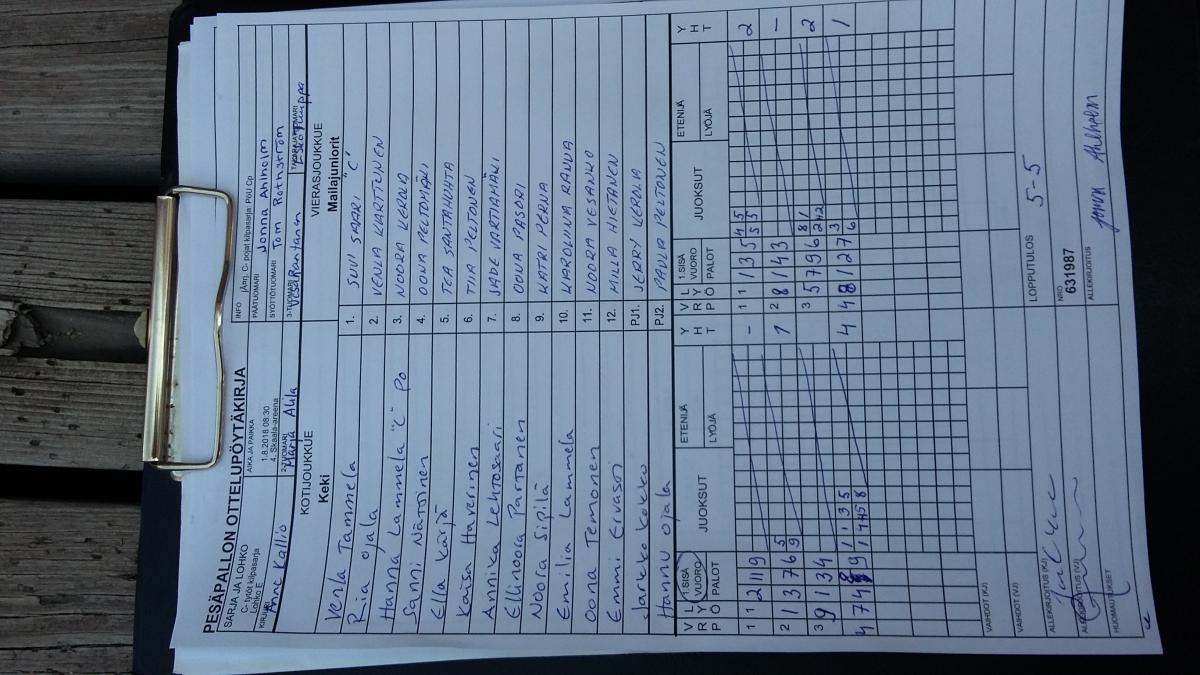 PESÄPALLON OTTELUPÖYTÄKIRJA
SARJA JA LOHKO
C- tytöt kilpasarja
Lohko E
KIRJURI
Anne Kallio
AIKA JA PAIKKA
1.8.2018 08:30
4. Skaala-areena
2-TUOMARI
Marja Alila
INFO
PÄÄTUOMARI
Jonna Ahlholm
SYÖTTÖTUOMARI
Tom Rothström
3-TUOMARI
Vesa Rantanen
KOTIJOUKKUE
Keki
VIERASJOUKKUE
Mailajuniorit
Verla Tammela 1. SUVI SAARI "C"
Ria Ojala 2. VENLA KARTTUNEN
Hanna Lammela "C" Po 3. NOORA KEROLA
Sanni Nättinen 4. OONA PELTOMÄKI
Ella Kärjä 5. TEA SANTAHUHTA
Kaisa Haverinen 6. TIIA PELTONEN
Annika Lehtosaari 7. JADE VARTIAMÄKI
Ellinoora Partanen 8. OONA PASARI
Noora Sipilä 9. KATRI PERNA
Emilia Lammela 10. KAROLIINA RAUVA
Oona Temonen 11. NOORA VESANKO
Emmi Ervasti 12. MILLA HIETANEN
Jarkko Kokko PJ1. JERRY KEROLA
Hannu Ojala PJ2. PAULA PELTONEN
V R L Y P Ö 1.SISÄ VUORO PALOT JUOKSUT ETENIJÄ LYÖJÄ Y H T
V R L Y P Ö 1.SISÄ VUORO PALOT JUOKSUT ETENIJÄ LYÖJÄ Y H T
1 1 2 11 9 - 1 1 1 3 5 4 5 2
5 5
2 1 3 7 6 5 1 2 8 1 4 3 -
9
3 9 1 3 4 3 5 7 9 6 8 1 2
4 7 4 9 1 1 3 5 4 4 8 1 2 7 3 1
6
VAIHDOT (KJ)
VAIHDOT (VJ)
ALLEKIRJOITUS (KJ)
ALLEKIRJOITUS (VJ)
HUOMAUTUKSET
LOPPUTULOS
5-5
NRO
631987
ALLEKIRJOITUS
Jonna Ahlholm